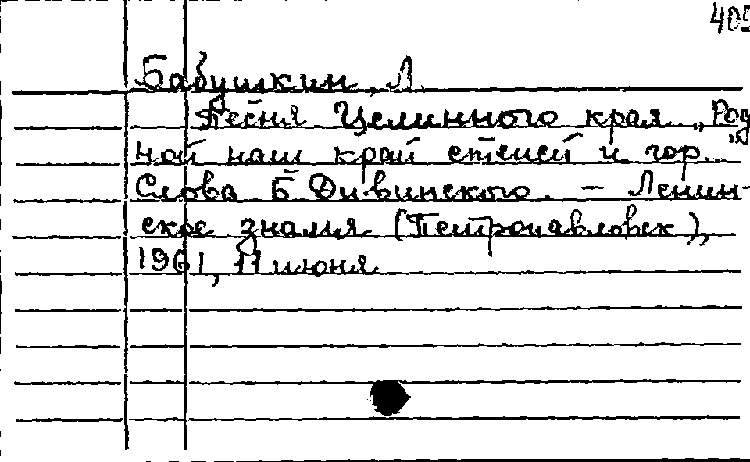 405
Бабушкин, Л.
Песня Целинного края „Род
ной наш край степей и гор..."
Слова Б Дивинского. - Ленин-
ское знамя (Петропавловск),
1961, 11 июня